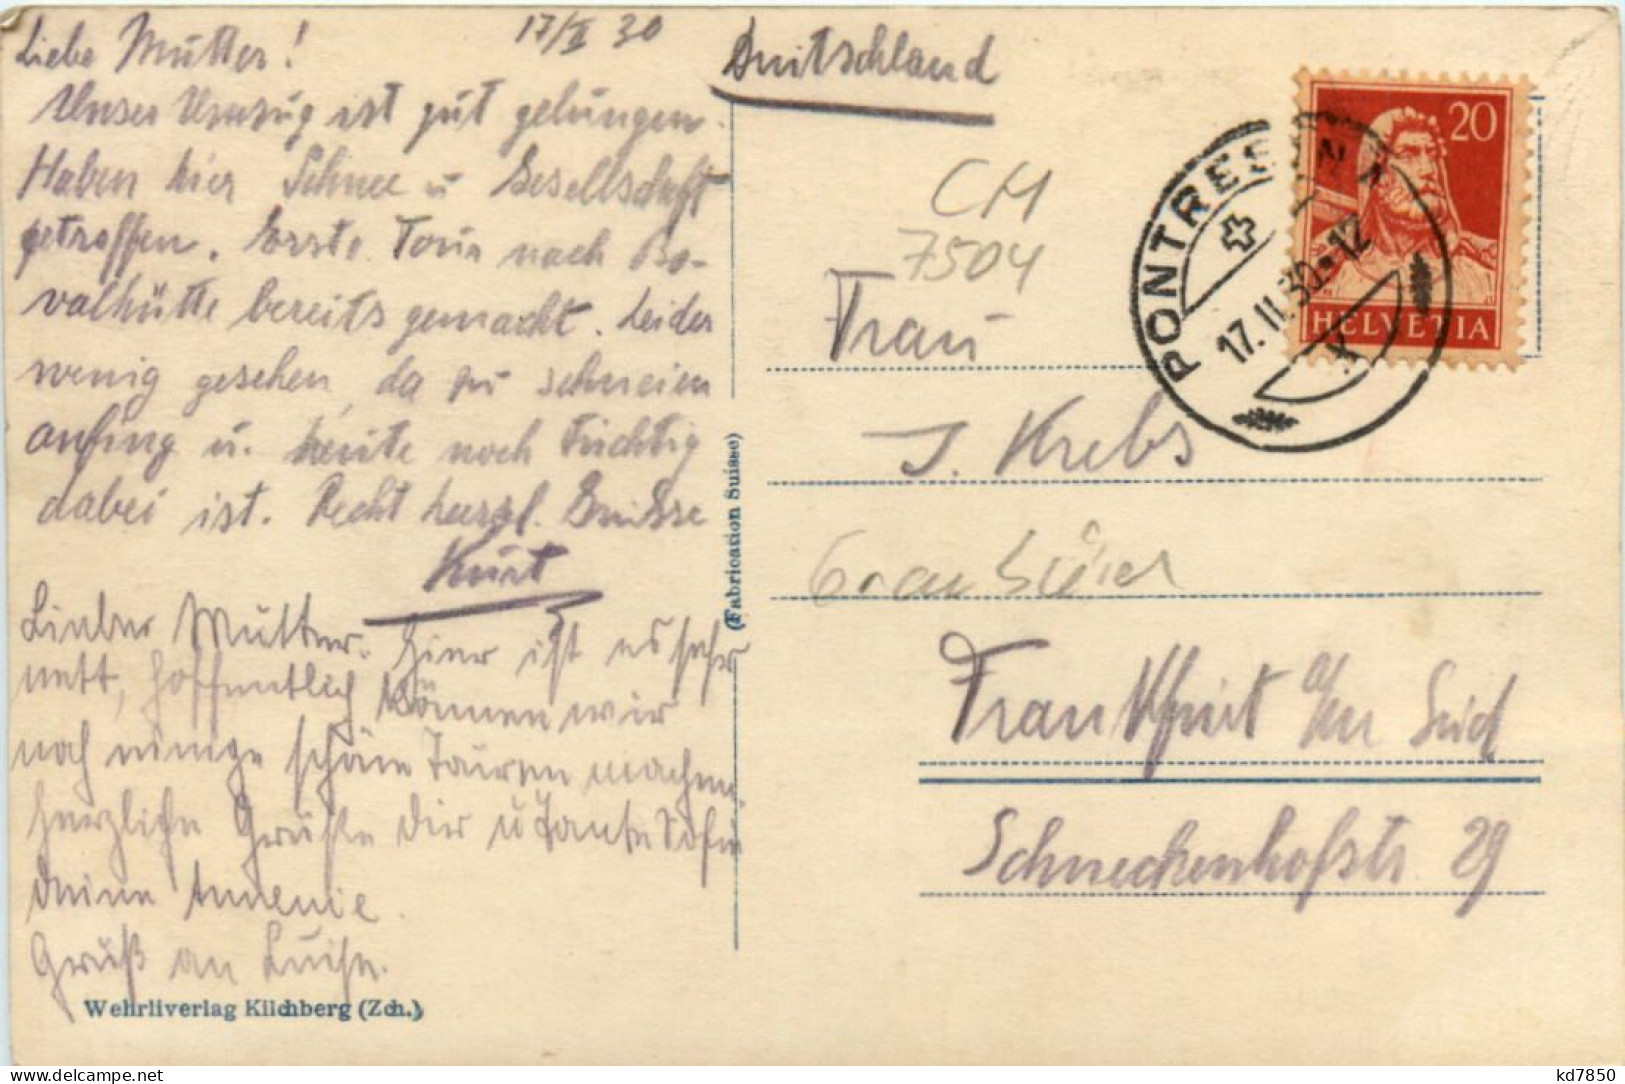 17/II 30
Liebe Mutter!
Unser Umzug ist gut gelungen.
Haben hier Schnee u Gesellschaft
getroffen. Erste Tour nach Bo-
valhütte bereits gemacht. Leider
wenig gesehen, da zu schneien
anfing u. heute noch tüchtig
dabei ist. Recht herzl. Grüsse
Kurt
Liebe Mutter. Hier ist es sehr
nett, hoffentlich können wir
noch einige schöne Touren machen.
Herzliche Grüße dir u Tante Sofie
deine Annemie.
Gruß an Luise.
Wehrliverlag Kilchberg (Zch.)
(Fabrication Suisse)
Deutschland
CH
7504
Frau
J. Krebs
Graubünden
Frankfurt a/M Süd
Schneckenhofstr. 29
PONTRESINA
17.II.30-12
20
HELVETIA
kd7850